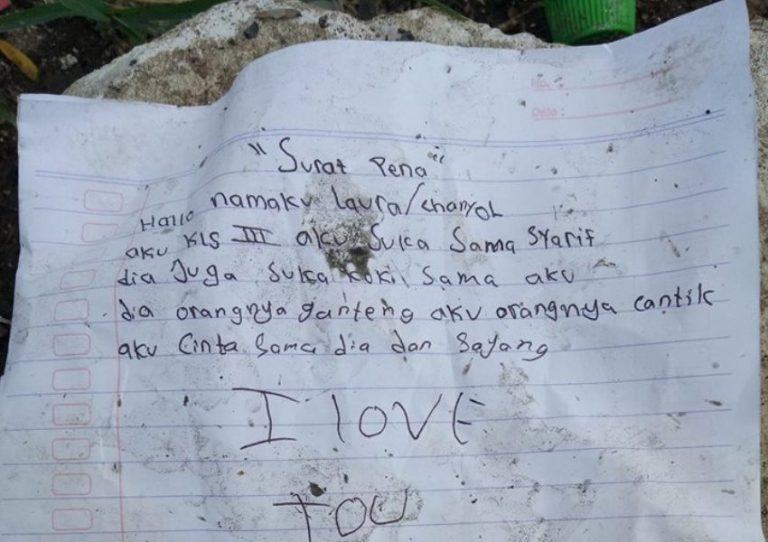 No. :
Date :
"Surat Pena"
Hallo namaku laura/chanyol
aku KLS III aku Suka Sama Syarif
dia Juga Suka kok Sama aku
dia orangnya ganteng aku orangnya cantik
aku Cinta Sama dia dan Sayang
I lOVE
YOU